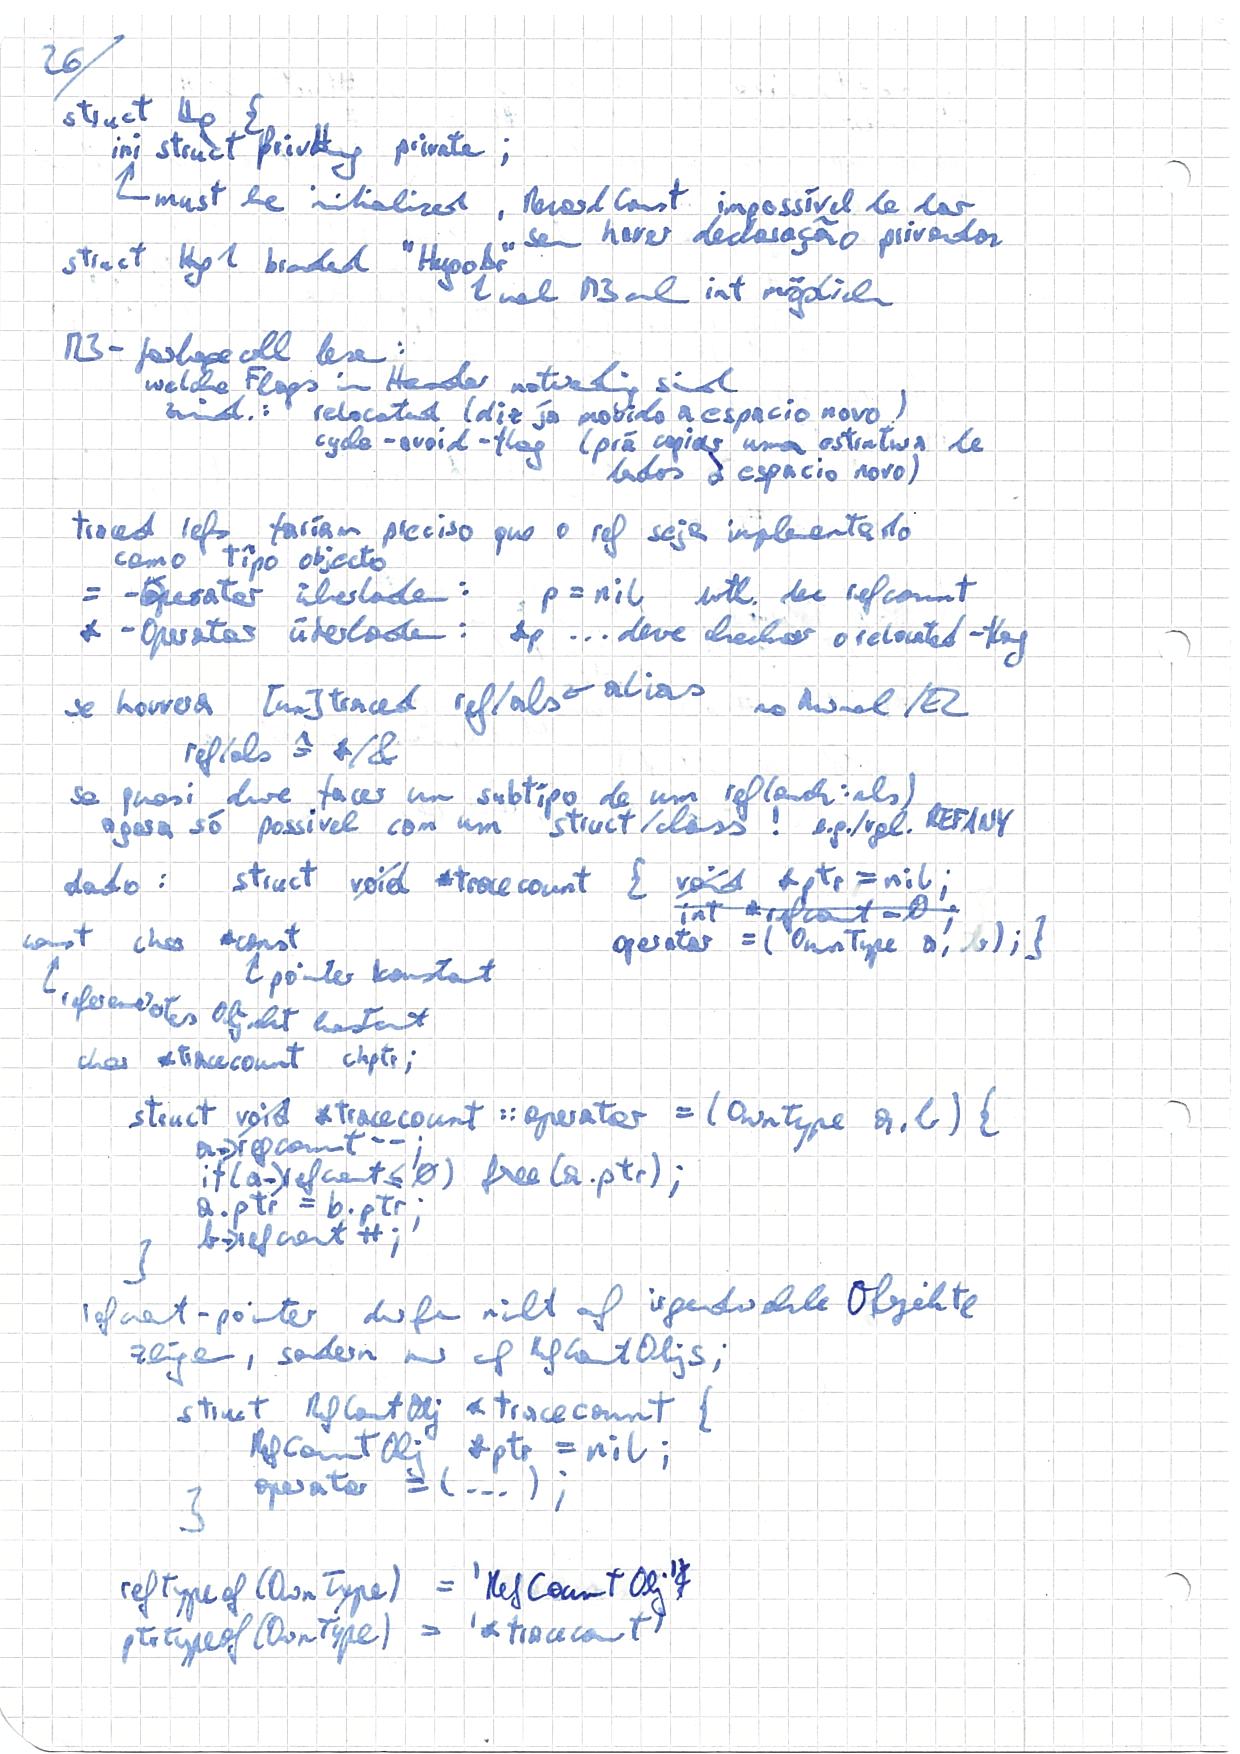 26/
struct Hg {
ini struct privHg private ;
must be initialized , RecordConst impossível de dar
sem haver declaração privador
struct Hg1 branded "Hugo
M3 int möglich
M3-
welche Flags in Header notwendig sind
mind.: relocated (diz já mobido a espacio novo)
cycle-avoid-flag (prà copiar uma estrutura de
dados à espacio novo)
traced refs fariam preciso que o ref seja inplementado
como tipo objecto
= -Operator überladen : p = nil refcount
* -Operator überladen : *p ... deve checkar o relocated-flag
se houvera [un]traced ref/als - alias no /EZ
ref/als ≙ */&
se quasi deve facer um subtipo de um ref(auch:als)
agora só possivel com um struct/class ! e.g./vgl. REFANY
dado : struct void *tracecount { void *ptr = nil ;
int *refcount = 0 ;
const char *const operator =( OwnType a, b) ; }
pointer konstant
referenziertes Objekt konstant
char *tracecount chptr;
struct void *tracecount :: operator = (OwnType a, b) {
a->refcount-- ;
if(a->refcount ≤ 0) free(a.ptr) ;
a.ptr = b.ptr ;
b->refcount ++ ;
}
refcount-pointer dürfen nicht auf irgendwelche Objekte
zeigen , sondern nur auf RefCountObjs ;
struct RefCountObj *tracecount {
RefCountObj *ptr = nil ;
operator =(...) ;
}
reftypeof(OwnType) = 'RefCountObj'
ptrtypeof(OwnType) = '*tracecount'